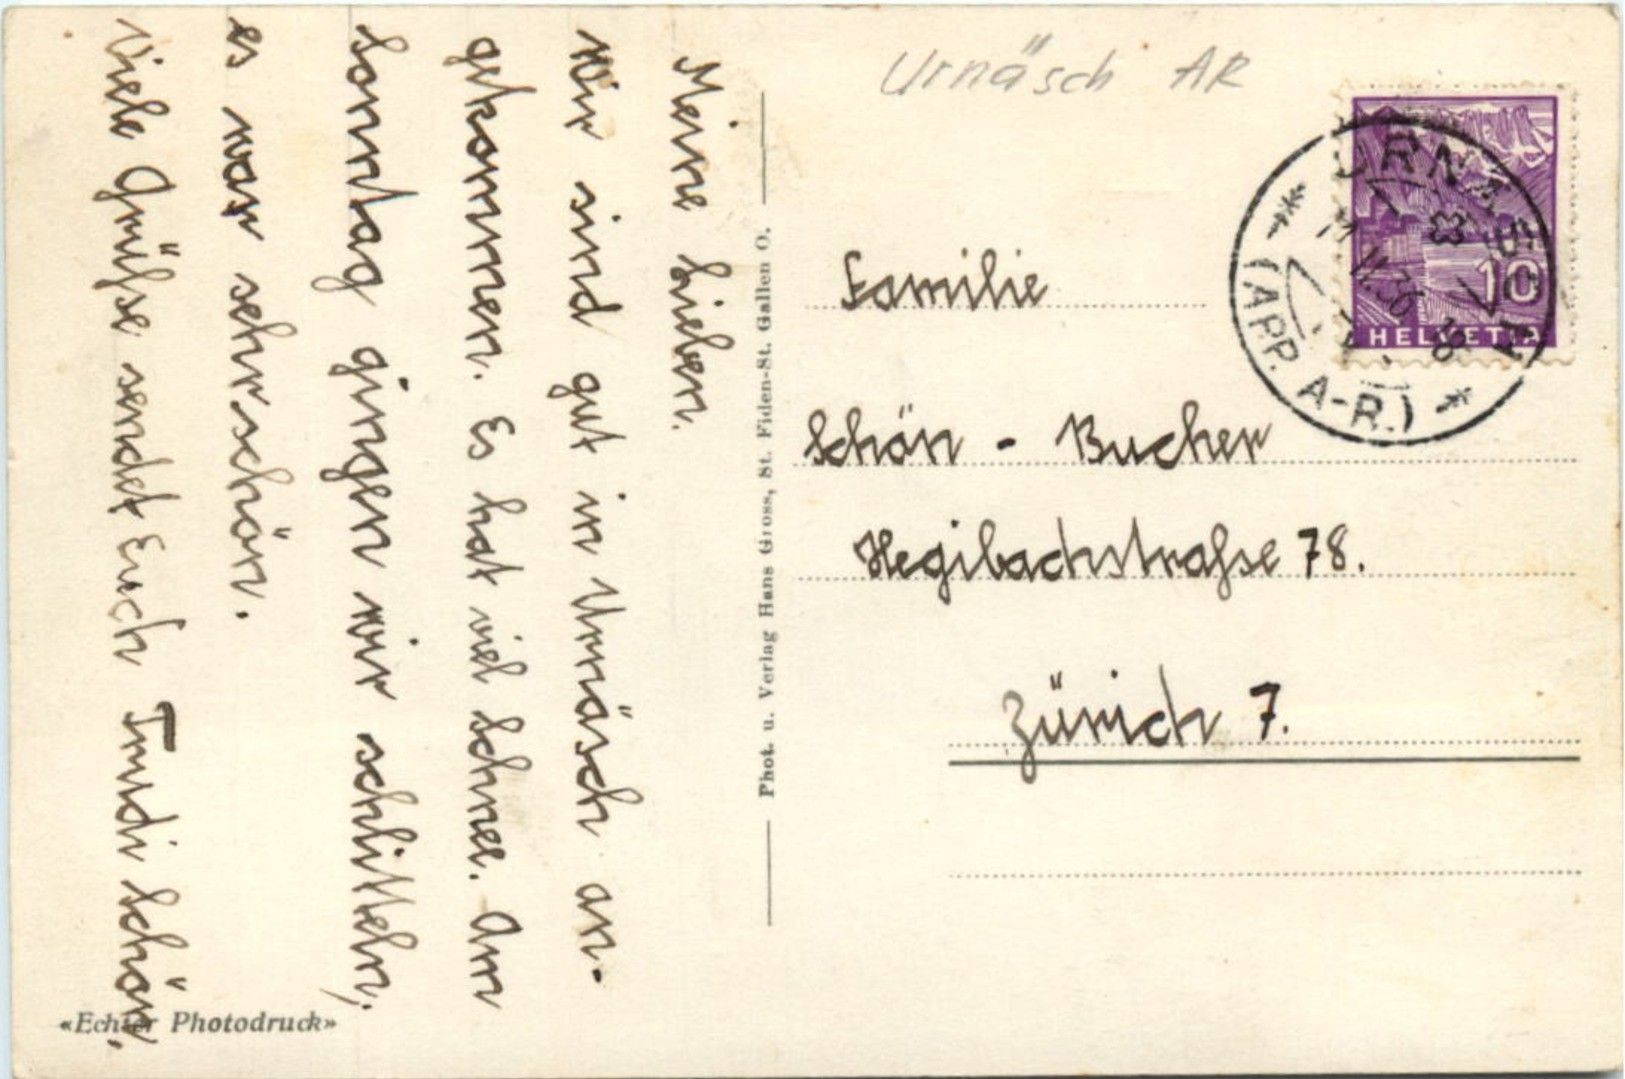 Meine Lieben.
Wir sind gut in Urnäsch an-
gekommen. Es hat viel Schnee. Am
Sonntag gingen wir schlitteln,
es war sehr schön.
Viele Grüße sendet Euch Trudi Schön.
«Echter Photodruck»
Phot. u. Verlag Hans Gross, St. Fiden-St. Gallen O.
Urnäsch AR
URNÄSCH
(APP. A-R.)
10
HELVETIA
Familie
Schön - Bucher
Hegibachstraße 78.
Zürich 7.